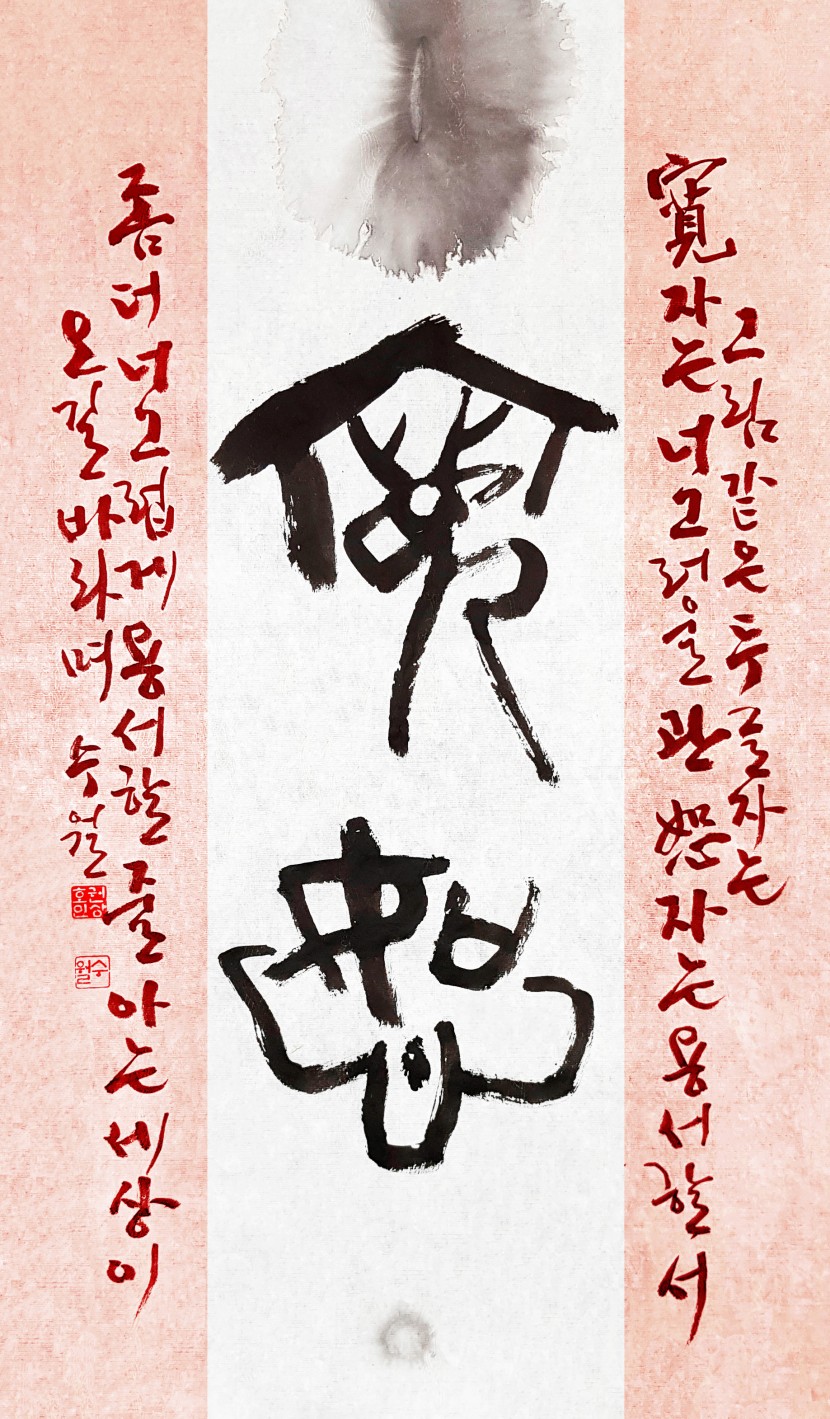 그림같은 두 글자는
寬자는 너그러울 관 恕자는 용서할 서
寬恕
좀더 너그럽게 용서할 줄 아는 세상이
오길 바라며 수월
권상호인
수월